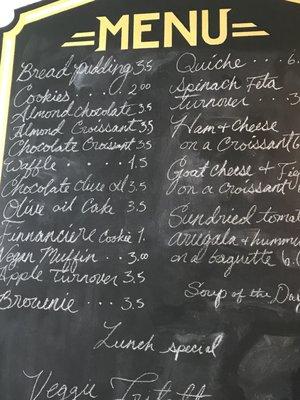 MENU
Bread pudding 3.5
Cookies .... 2.00
Almond chocolate 3.5
Almond Croissant 3.5
Chocolate Croissant 3.5
Waffle .... 4.5
Chocolate olive oil 3.5
Olive oil Cake 3.5
Finnanciere Cookie 1.
Vegan Muffin ... 3.00
Apple Turnover 3.5
Brownie .... 3.5
Quiche .... 6.
Spinach Feta
turnover .... 3.
Ham & cheese
on a Croissant 6
Goat cheese & Fig
on a croissant
Sundried tomat
arugala & hummu
on a baguette 6.
Soup of the Day
Lunch special
Veggie